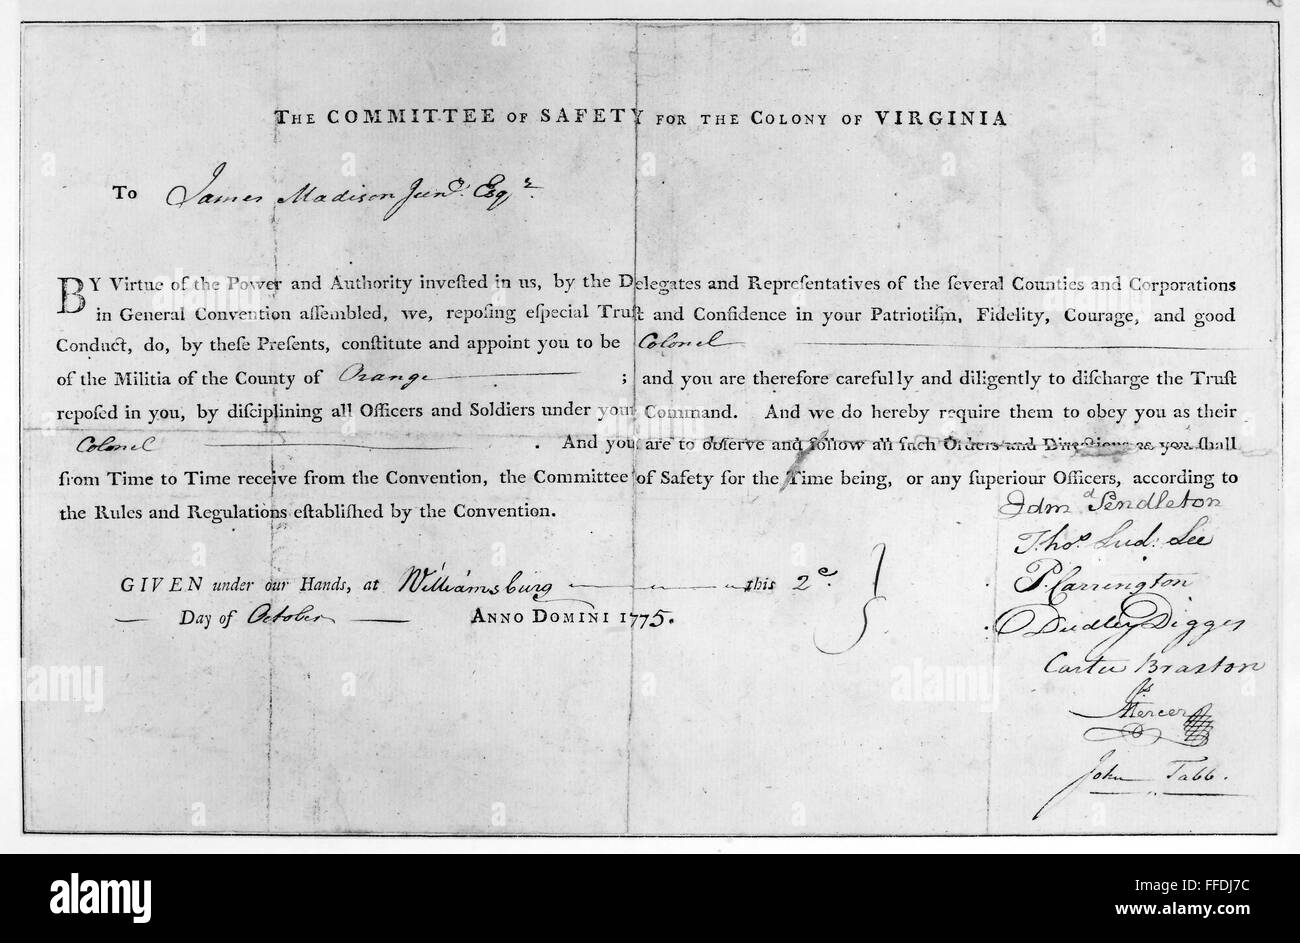 THE COMMITTEE OF SAFETY FOR THE COLONY OF VIRGINIA
To James Madison Junr. Esqr.
BY Virtue of the Power and Authority inveſted in us, by the Delegates and Repreſentatives of the ſeveral Counties and Corporations
in General Convention aſſembled, we, repoſing eſpecial Truſt and Confidence in your Patriotiſm, Fidelity, Courage, and good
Conduct, do, by theſe Preſents, conſtitute and appoint you to be Colonel
of the Militia of the County of Orange ; and you are therefore carefully and diligently to diſcharge the Truſt
repoſed in you, by diſciplining all Officers and Soldiers under your Command. And we do hereby require them to obey you as their
Colonel . And you are to obſerve and follow all ſuch Orders and Directions as you ſhall
from Time to Time receive from the Convention, the Committee of Safety for the Time being, or any ſuperiour Officers, according to
the Rules and Regulations eſtabliſhed by the Convention.
Edmd Pendleton
Thos. Lud: Lee
P. Carrington
Dudley Digges
Carter Braxton
Js Mercer
John Tabb.
GIVEN under our Hands, at Williamsburg this 2d.
Day of October ANNO DOMINI 1775.
alamy
a
alamy stock photo
FFDJ7C
www.alamy.com